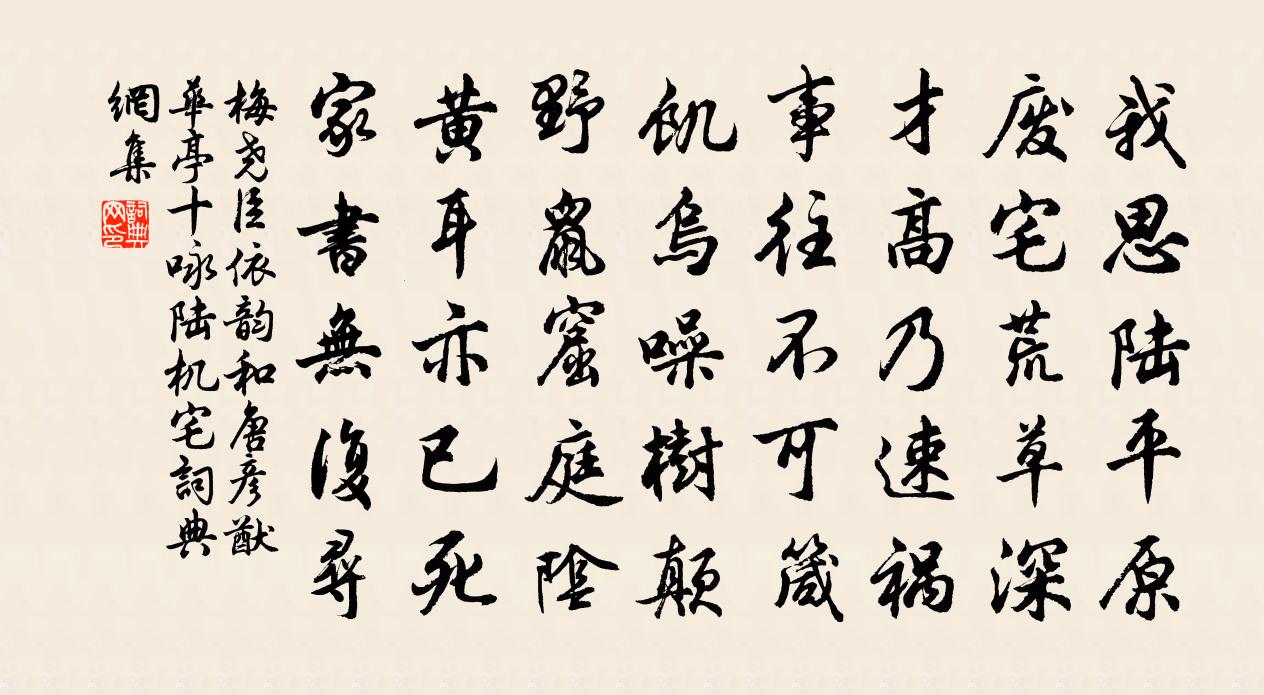 我思陆平原
废宅荒草深
才高乃速祸
事往不可箴
飢乌噪樹颠
野鼠窟庭陰
黄耳亦已死
家書無復尋
梅尧臣依韵和唐彦猷
華亭十咏陆机宅詞典
網集
詞典网印